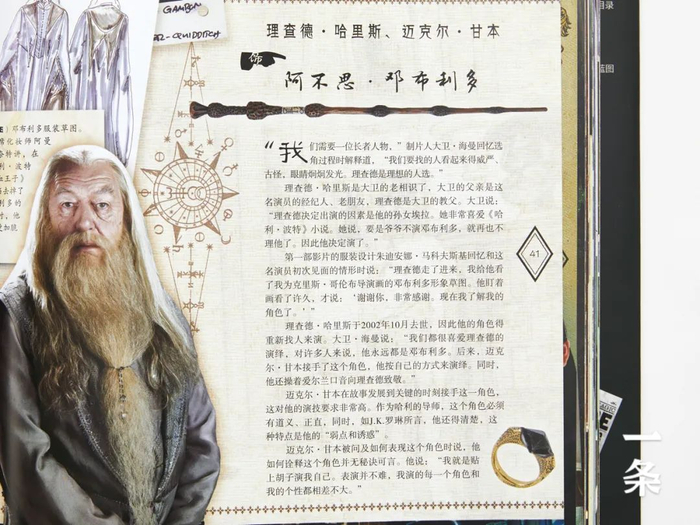 GAMBON
-QUIDDITCH
理查德·哈里斯、迈克尔·甘本
饰
阿不思·邓布利多
“我们需要一位长者人物、”制片人大卫·海曼回忆选
角过程时解释道,“我们要找的人看起来得威严、
古怪,眼睛炯炯发光。理查德是理想的人选。”
理查德·哈里斯是大卫的老相识了,大卫的父亲是这
名演员的经纪人、老朋友,理查德是大卫的教父。大卫说:
“理查德决定出演的因素是他的孙女埃拉。她非常喜爱《哈
利·波特》小说。她说,要是爷爷不演邓布利多,就再也不
理他了。因此他决定演了。”
第一部影片的服装设计朱迪安娜·马科夫斯基回忆和这
名演员初次见面的情形时说:“理查德走了进来,我给他看
了我为克里斯·哥伦布导演画的邓布利多形象草图。他盯着
画看了许久,才说:‘谢谢你,非常感谢。现在我了解我的
角色了。’”
理查德·哈里斯于2002年10月去世,因此他的角色得
重新找人来演。大卫·海曼说:“我们都很喜爱理查德的
演绎,对许多人来说,他永远都是邓布利多。后来,迈克
尔·甘本接手了这个角色,他按自己的方式来演绎。同时,
他还操着爱尔兰口音向理查德致敬。”
迈克尔·甘本在故事发展到关键的时刻接手这一角色,
这对他的演技要求非常高。作为哈利的导师,这个角色必须
有道义、正直,同时,如J.K.罗琳所言,他还得清楚,这
种特点是他的“弱点和诱惑”。
迈克尔·甘本被问及如何表现这个角色时说,他
如何诠释这个角色并无秘诀可言。他说:“我就是贴
上胡子演我自己。表演并不难,我演的每一个角色和
我的个性都相差不大。”
41
邓布利多服装草图。
化妆师阿曼
特评,在
利·波特
王子》
去掉了
利多的
时,他
目录
蓝图
一条